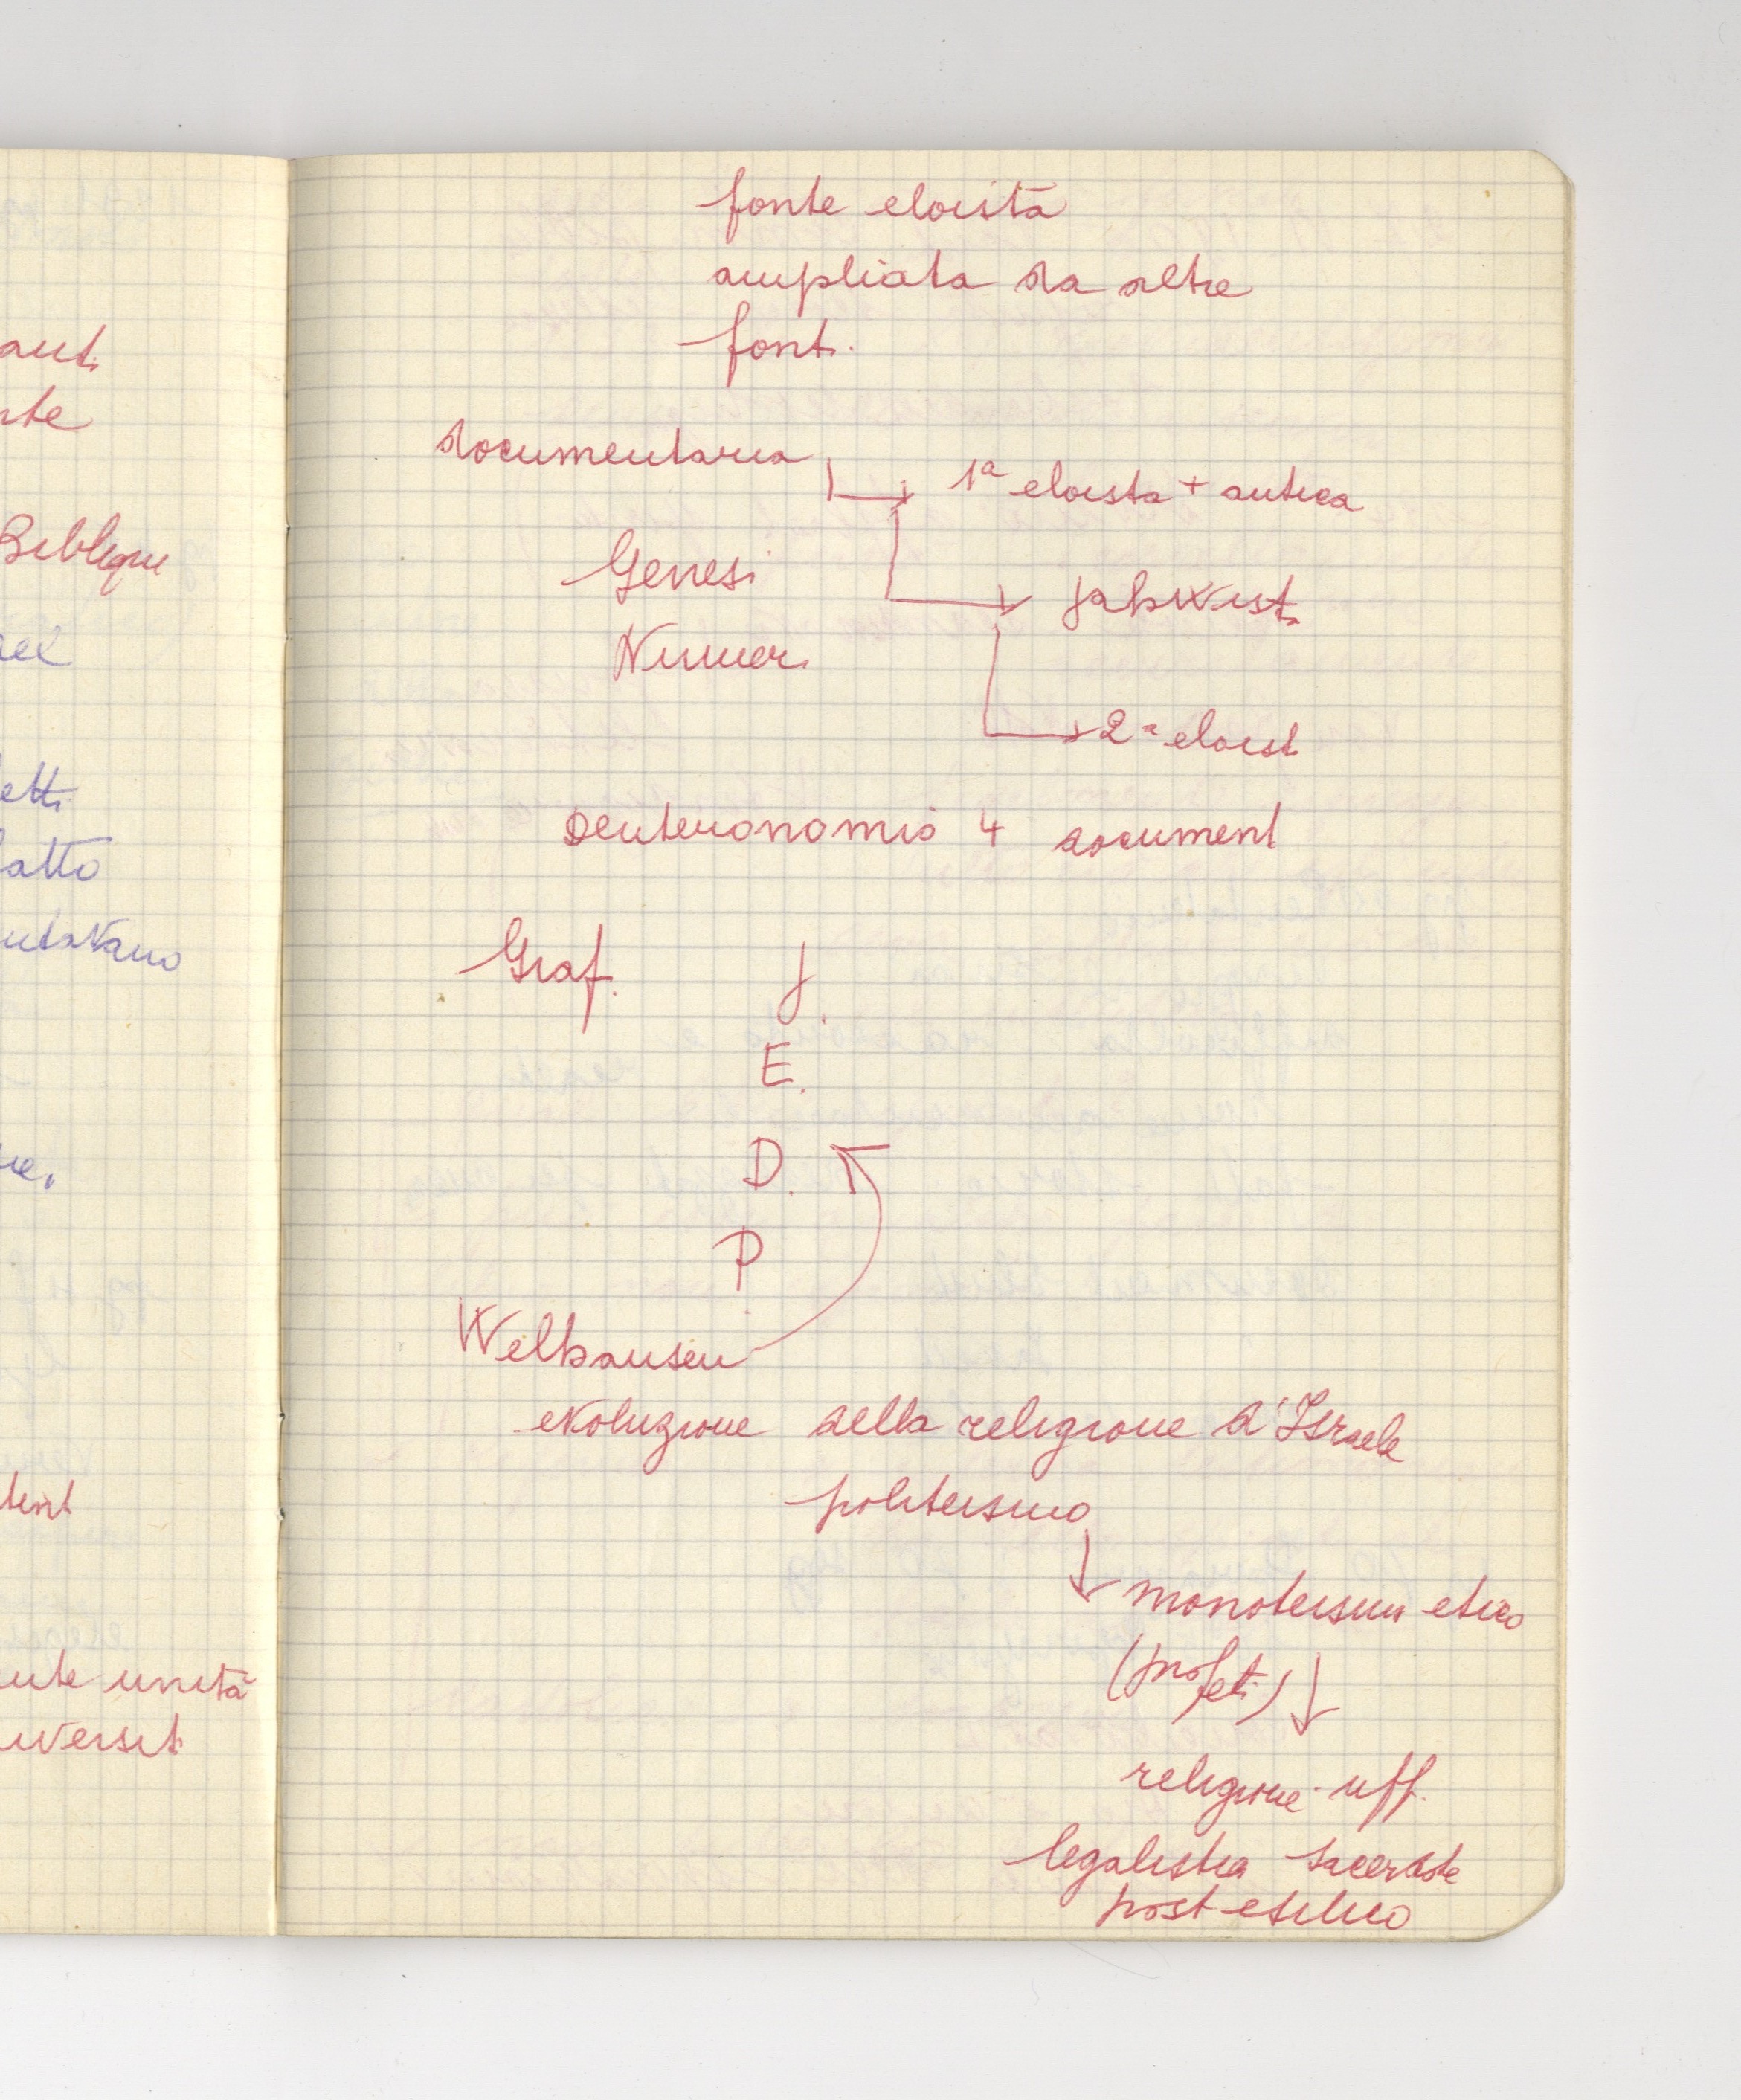 aut.
te
Biblique
ael
etti
fatto
utavano
ue.
tent
ute unità
iversit.
fonte eloista
ampliata da altre
fonti.
documentaria 1ª eloista + antica
Genesi jahwist.
Numeri
2ª eloist
Deuteronomio 4 document
Graf. J.
E.
D.
P.
Welhausen
evoluzione della religione d'Israele
politeismo
monoteismo etico
(profeti)
religione uff.
legalistica sacerdote
post esilico